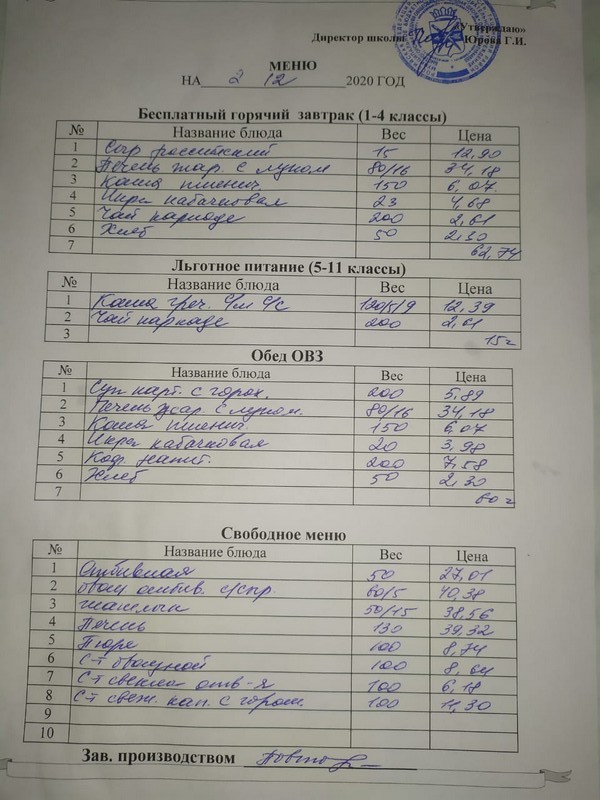 «Утверждаю»
Директор школы Юрова Г.И.
МЕНЮ
НА 2 12 2020 ГОД
Бесплатный горячий завтрак (1-4 классы)
№ Название блюда Вес Цена
1 Сыр российский 15 12,90
2 Печень жар. с луком 80/16 34,18
3 Каша пшенич. 150 6,07
4 Икра кабачковая 23 4,68
5 Чай каркаде 200 2,61
6 Хлеб 50 2,30
7 62,74
Льготное питание (5-11 классы)
№ Название блюда Вес Цена
1 Каша греч. с/м с/с 120/5/9 12,39
2 Чай каркаде 200 2,61
3 15
Обед ОВЗ
№ Название блюда Вес Цена
1 Суп карт. с горох. 200 5,89
2 Печень жар. с луком. 80/16 34,18
3 Каша пшенич 150 6,07
4 Икра кабачковая 20 3,98
5 Коф. напит. 200 7,58
6 Хлеб 50 2,30
7 60
Свободное меню
№ Название блюда Вес Цена
1 Отбивная 50 27,01
2 60/5 40,38
3 шашлык 50/45 38,56
4 Печень 130 39,32
5 Пюре 100 8,74
6 С-т 100 8,64
7 С-т свекла отв-я 100 6,18
8 С-т свеж. кап. с горош. 100 11,30
9
10
Зав. производством